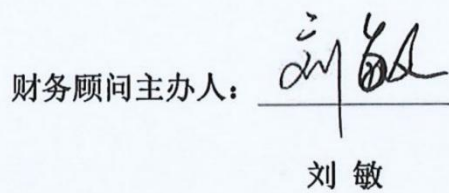 财务顾问主办人：刘敏
刘 敏